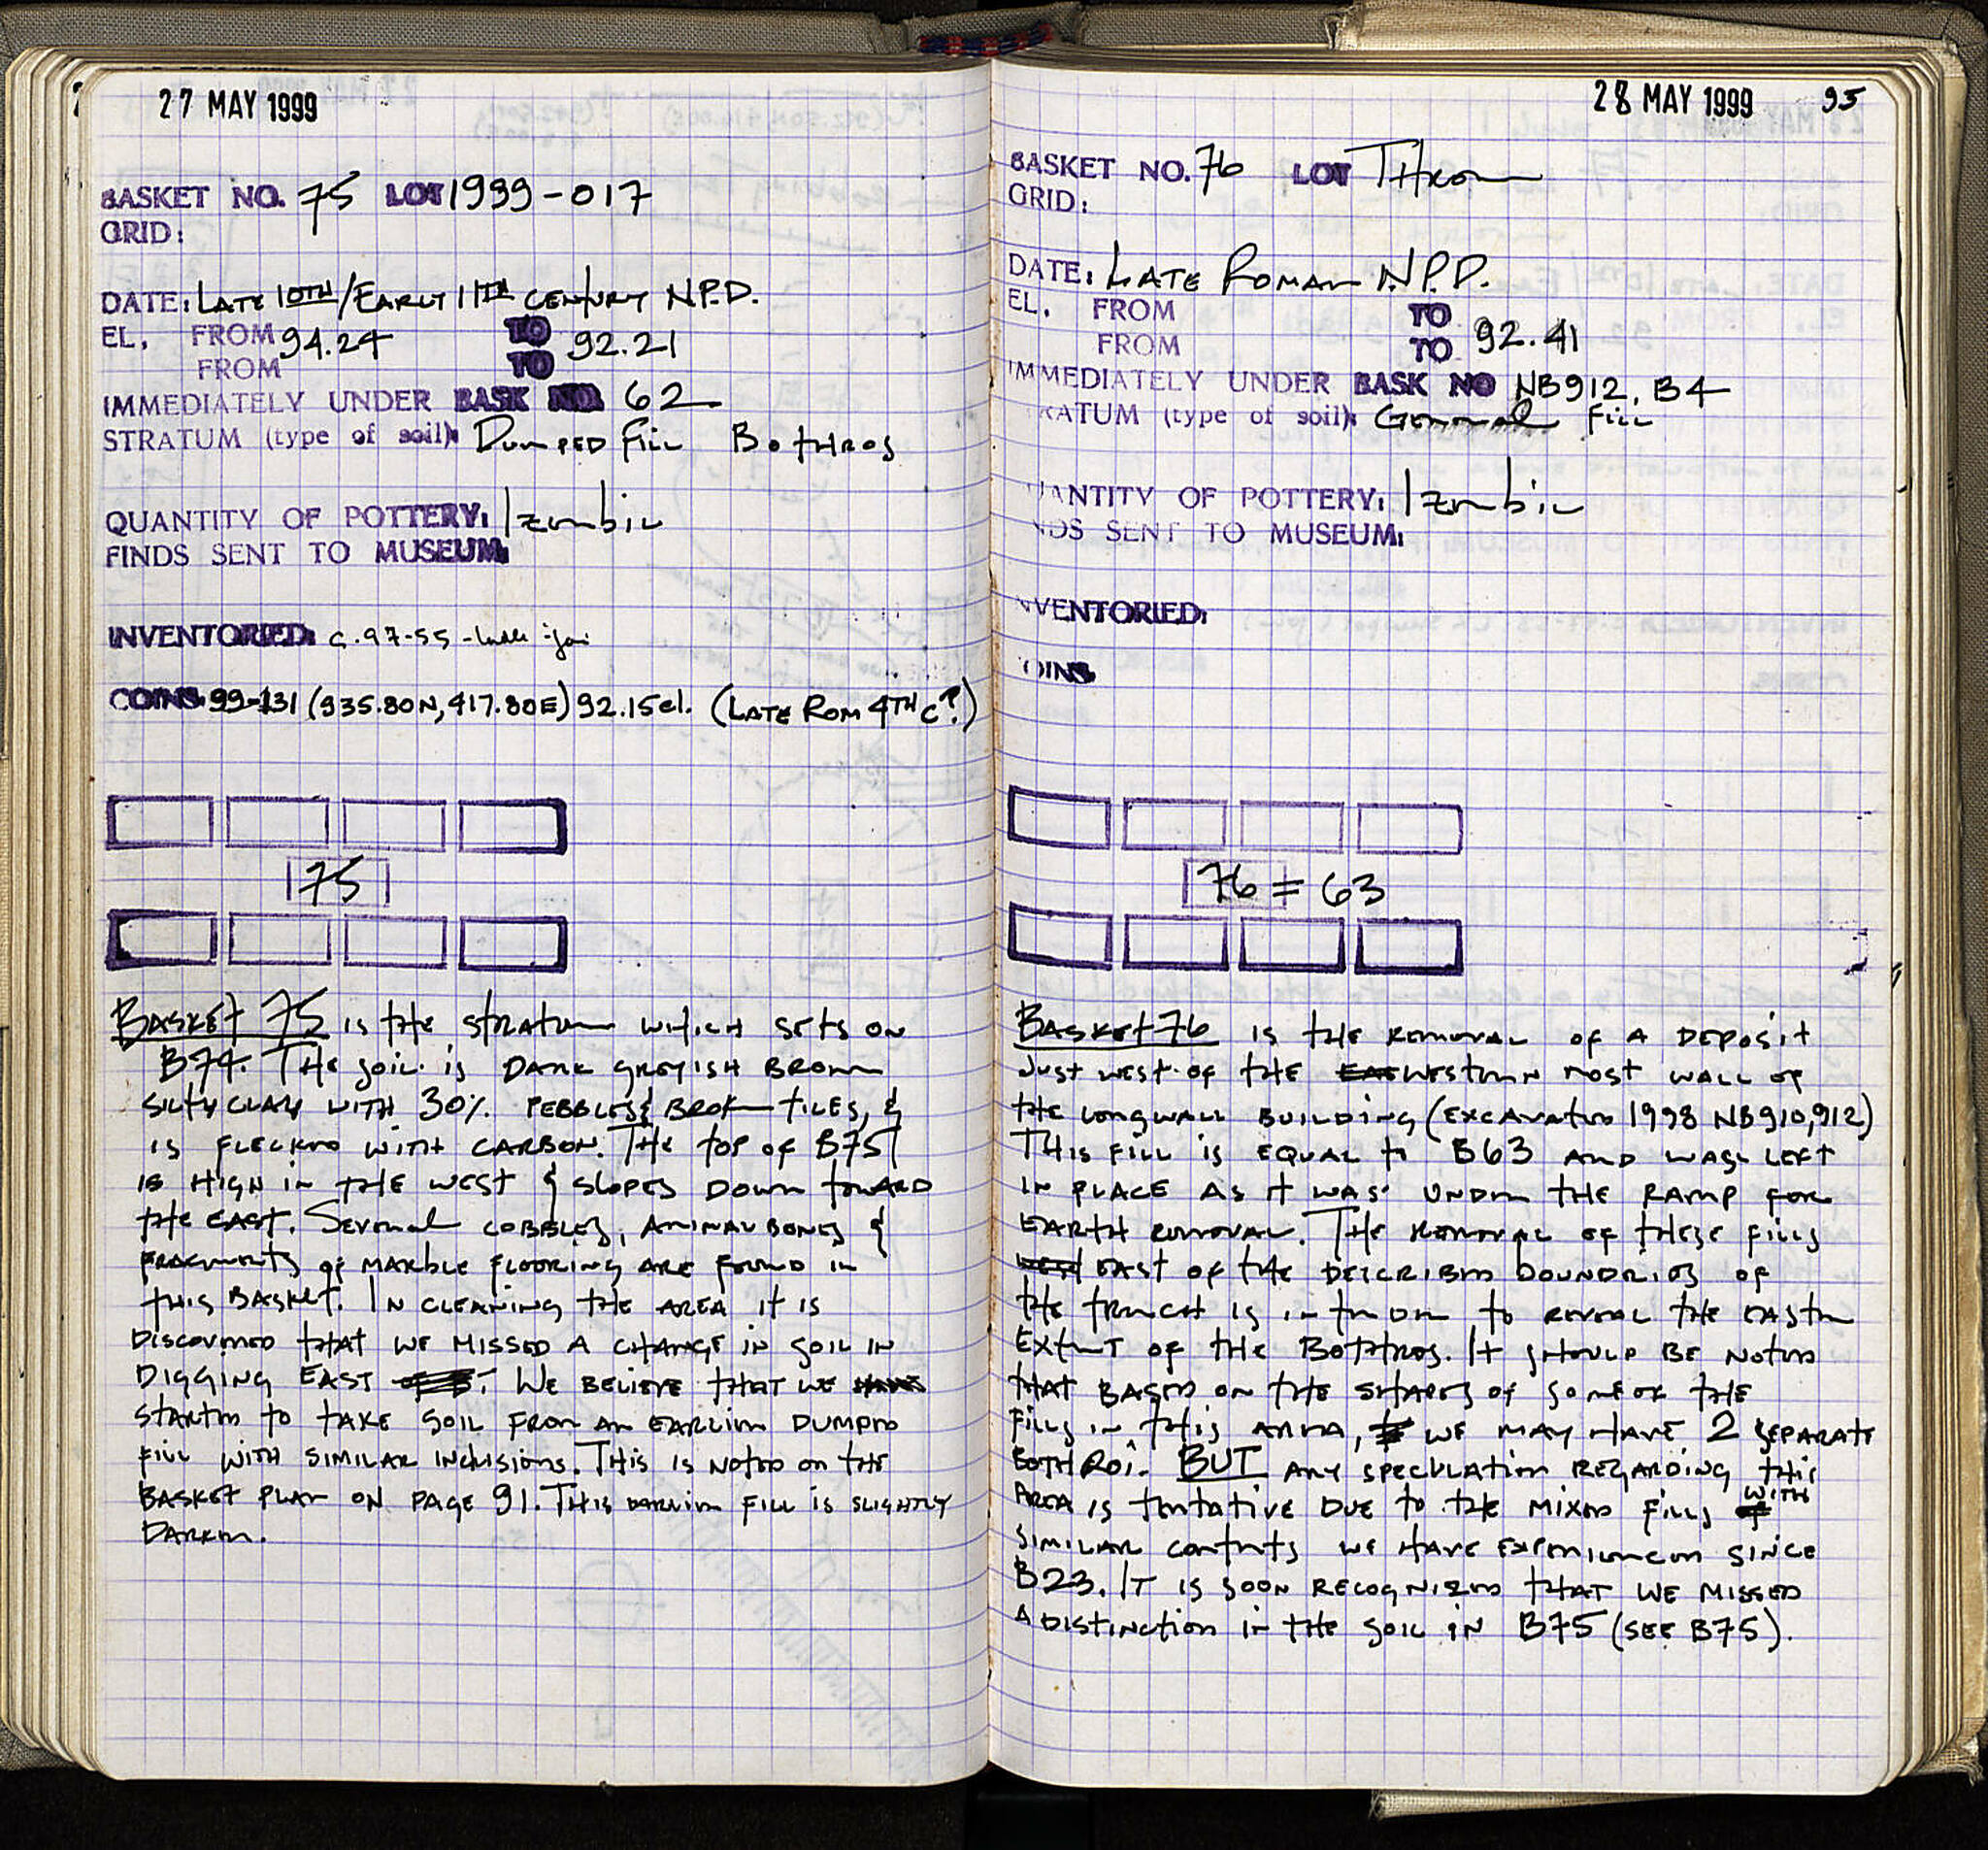 27 MAY 1999
BASKET NO. 75 LOT 1999-017
GRID:
DATE: LATE 10TH/EARLY 11TH CENTURY N.P.D.
EL. FROM 94.24 TO 92.21
FROM TO
IMMEDIATELY UNDER BASK NO. 62
STRATUM (type of soil): DUMPED FILL BOTHROS
QUANTITY OF POTTERY: 1 zembil
FINDS SENT TO MUSEUM:
INVENTORIED: C.97-55 -
COINS 99-131 (935.80N, 417.80E) 92.15el. (LATE ROM 4TH C?)
75
BASKET 75 IS THE STRATUM WHICH SETS ON
B74. THE SOIL IS DARK GREYISH BROWN
SILTY CLAY WITH 30% PEBBLES & BROKEN TILES, &
IS FLECKED WITH CARBON. THE TOP OF B75
IS HIGH IN THE WEST & SLOPES DOWN TOWARD
THE EAST. SEVERAL COBBLES, ANIMAL BONES &
FRAGMENTS OF MARBLE FLOORING ARE FOUND IN
THIS BASKET. IN CLEANING THE AREA IT IS
DISCOVERED THAT WE MISSED A CHANGE IN SOIL IN
DIGGING EAST. WE BELIEVE THAT WE
STARTED TO TAKE SOIL FROM AN EARLIER DUMPED
FILL WITH SIMILAR INCLUSIONS. THIS IS NOTED ON THE
BASKET PLAN ON PAGE 91. THIS EARLIER FILL IS SLIGHTLY
DARKER.
28 MAY 1999 95
BASKET NO. 76 LOT THROWN
GRID:
DATE: LATE ROMAN N.P.D.
EL. FROM TO
FROM TO 92.41
IMMEDIATELY UNDER BASK NO NB912, B4
RATUM (type of soil): GENERAL FILL
ANTITY OF POTTERY: 1 zembil
DS SENT TO MUSEUM:
VENTORIED:
OINS
76 = 63
BASKET 76 IS THE REMOVAL OF A DEPOSIT
JUST WEST OF THE WESTERN MOST WALL OF
THE LONG WALL BUILDING (EXCAVATED 1998 NB910,912)
THIS FILL IS EQUAL TO B63 AND WAS LEFT
IN PLACE AS IT WAS UNDER THE RAMP FOR
EARTH REMOVAL. THE REMOVAL OF THESE FILLS
EAST OF THE DESCRIBED BOUNDRIES OF
THE TRENCH IS IN ORDER TO REVEAL THE EASTERN
EXTENT OF THE BOTHROS. IT SHOULD BE NOTED
THAT BASED ON THE SHAPES OF SOME OF THE
FILLS IN THIS AREA, WE MAY HAVE 2 SEPARATE
BOTHROI. BUT ANY SPECULATION REGARDING THIS
AREA IS TENTATIVE DUE TO THE MIXED FILLS WITH
SIMILAR CONTENTS WE HAVE EXPERIENCED SINCE
B23. IT IS SOON RECOGNIZED THAT WE MISSED
A DISTINCTION IN THE SOIL IN B75 (SEE B75).